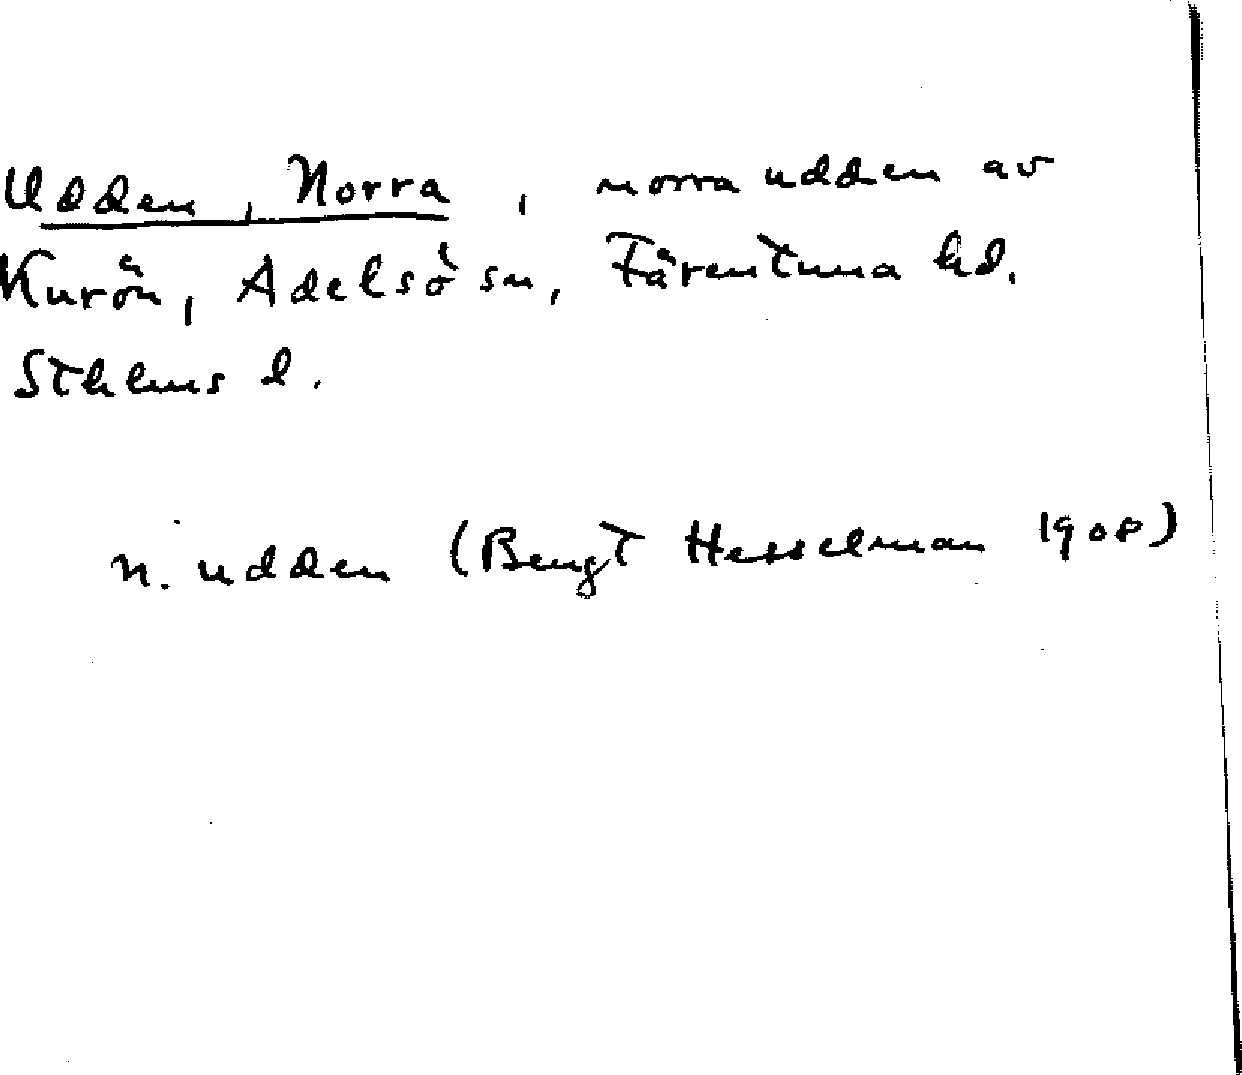 Udden, Norra, norra udden av
Kurön, Adelsö sn, Färentuna hd.
Sthlms l.
n. udden (Bengt Hesselman 1908)